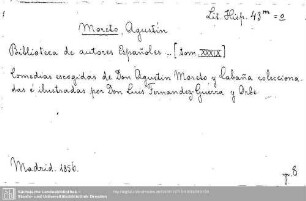 Lit. Hisp. 43ᵐ = o
Moreto, Agustin
Biblioteca de autores Españoles .. [tom. XXXIX]
Comedias escogidas de Don Agustin Moreto y Cabaña colecciona
das é ilustradas por Don Luis Fernandez-Guerra y Orbe.
Madrid. 1856.
Sächsische Landesbibliothek -
Staats- und Universitätsbibliothek Dresden